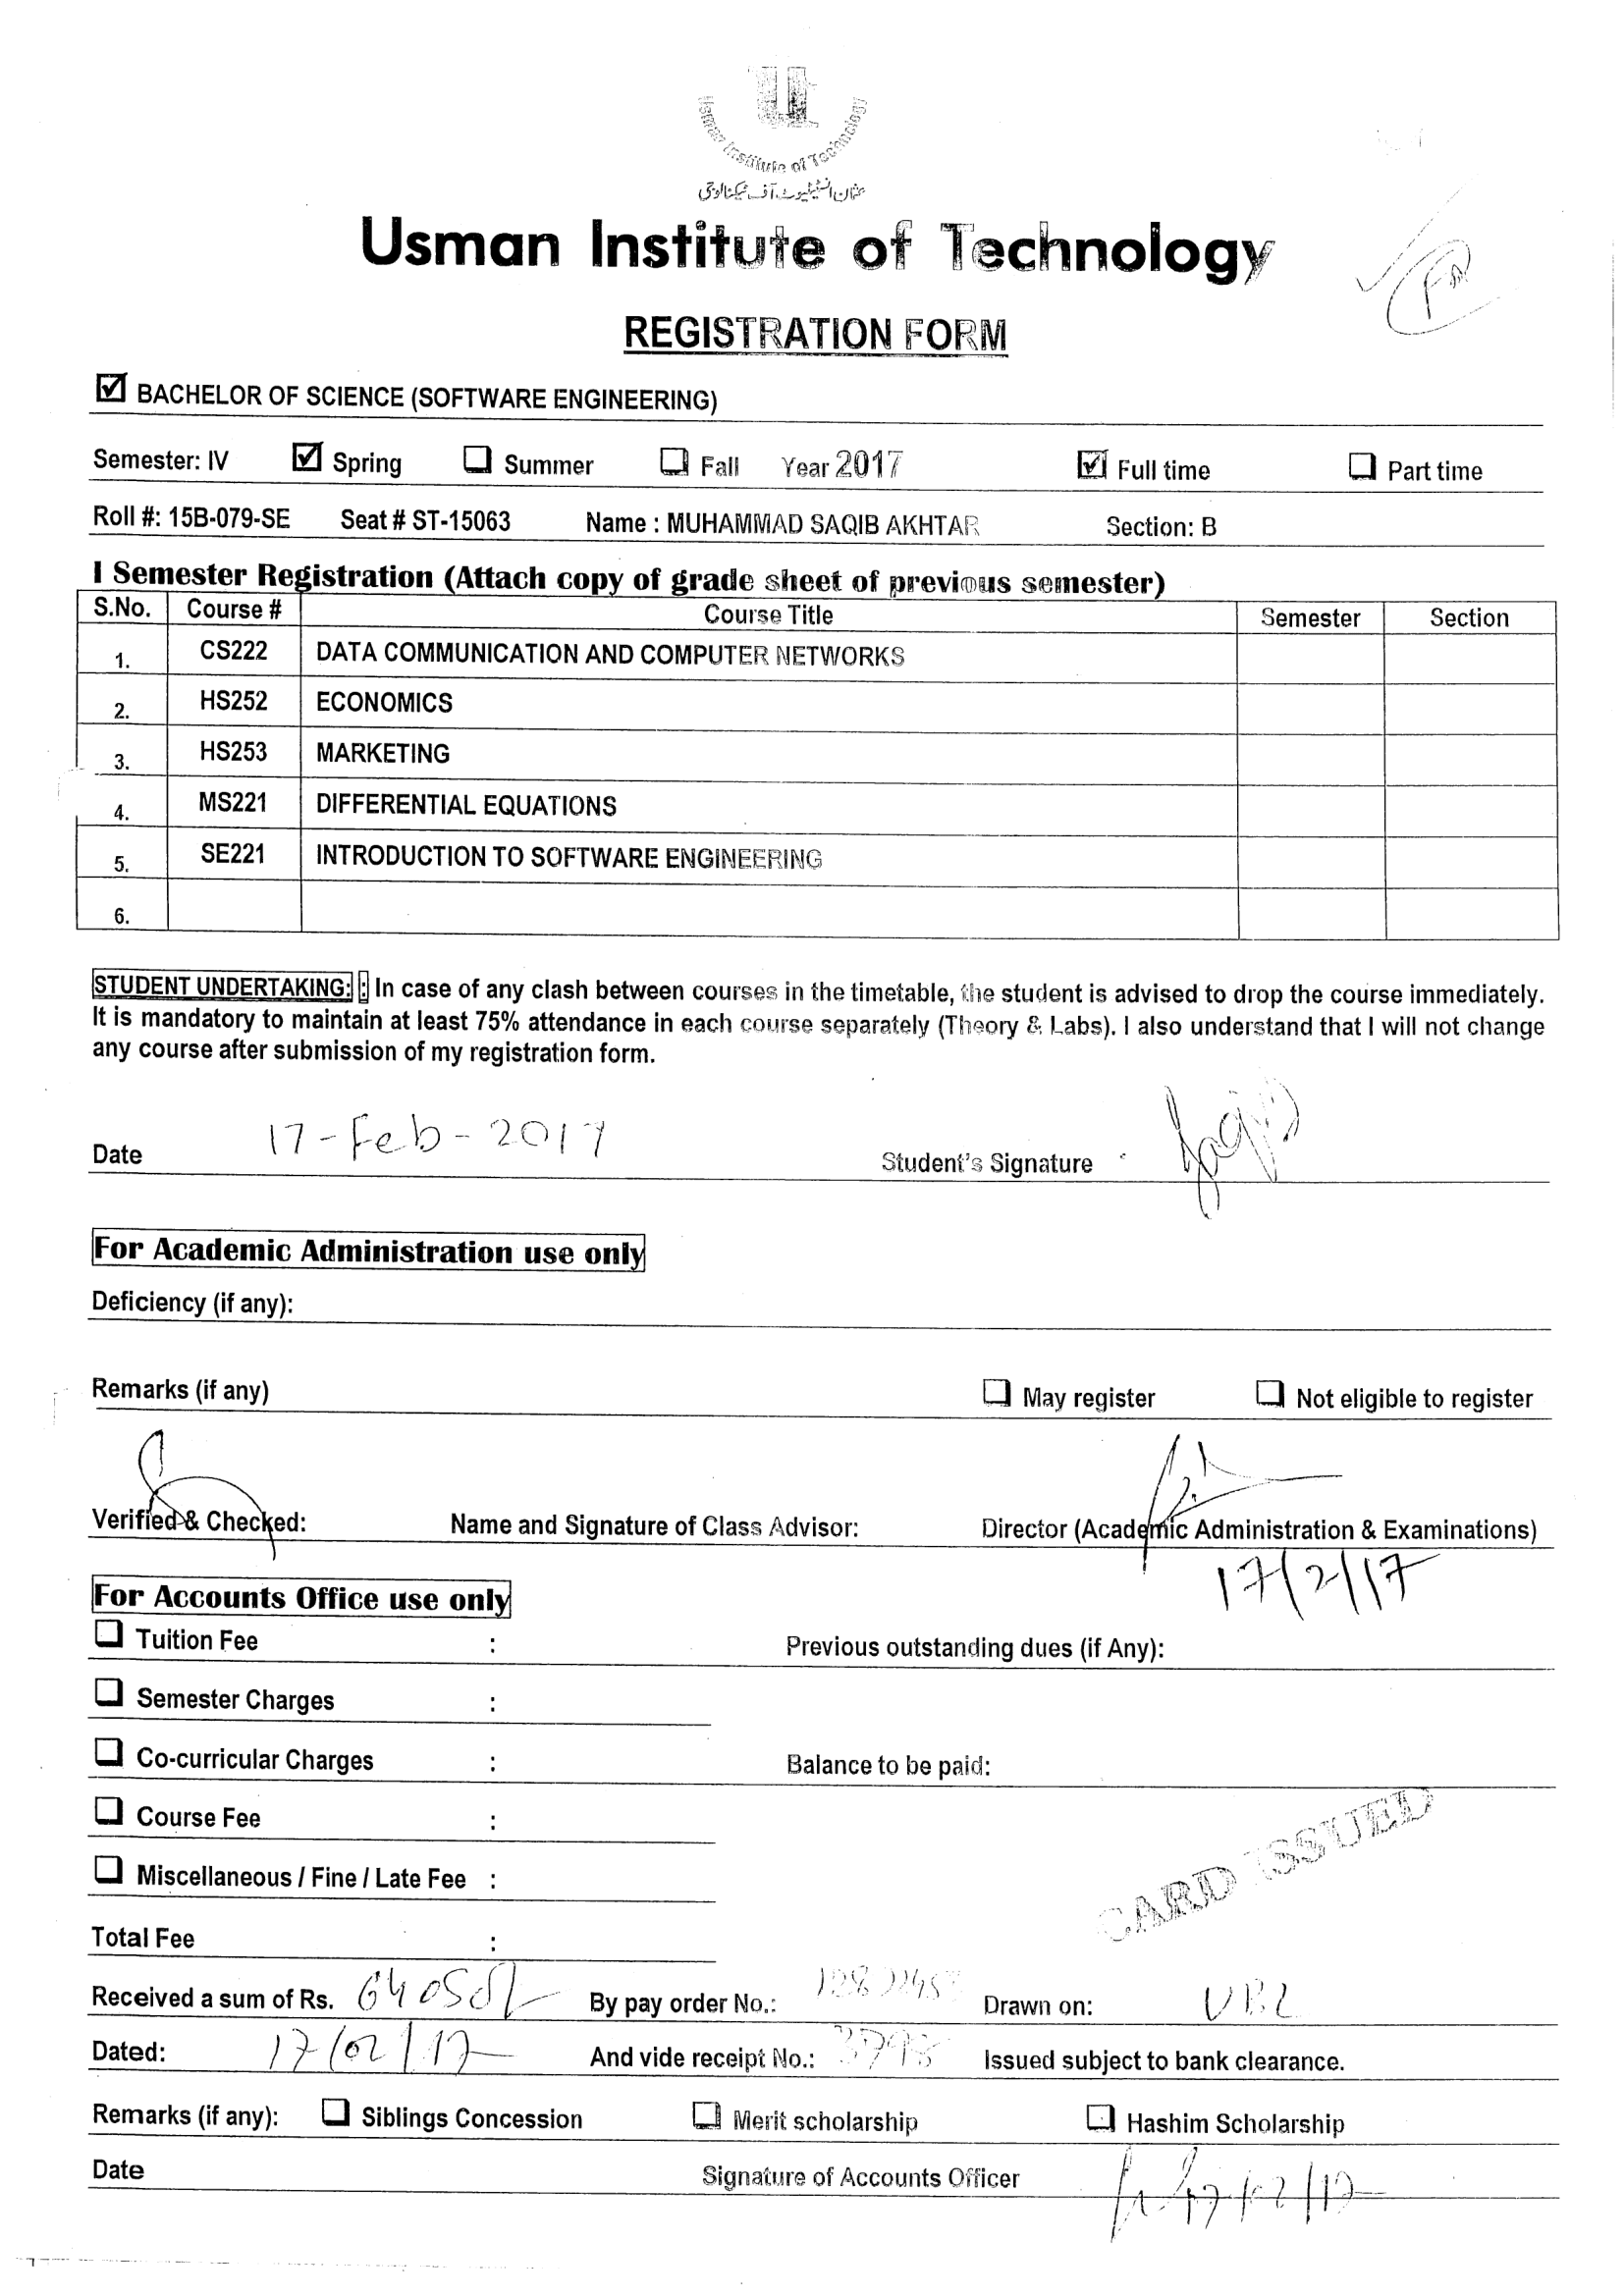 Usman Institute of Technology
عثمان انسٹیٹیوٹ آف ٹیکنالوجی
Usman Institute of Technology
REGISTRATION FORM
BACHELOR OF SCIENCE (SOFTWARE ENGINEERING)
Semester: IV Spring Summer Fall Year 2017 Full time Part time
Roll #: 15B-079-SE Seat # ST-15063 Name : MUHAMMAD SAQIB AKHTAR Section: B
I Semester Registration (Attach copy of grade sheet of previous semester)
S.No. Course # Course Title Semester Section
1. CS222 DATA COMMUNICATION AND COMPUTER NETWORKS
2. HS252 ECONOMICS
3. HS253 MARKETING
4. MS221 DIFFERENTIAL EQUATIONS
5. SE221 INTRODUCTION TO SOFTWARE ENGINEERING
6.
STUDENT UNDERTAKING: : In case of any clash between courses in the timetable, the student is advised to drop the course immediately.
It is mandatory to maintain at least 75% attendance in each course separately (Theory & Labs). I also understand that I will not change
any course after submission of my registration form.
Date 17-Feb-2017 Student's Signature Saqib
For Academic Administration use only
Deficiency (if any):
Remarks (if any) May register Not eligible to register
Verified & Checked: Name and Signature of Class Advisor: Director (Academic Administration & Examinations)
17/2/17
For Accounts Office use only
Tuition Fee : Previous outstanding dues (if Any):
Semester Charges :
Co-curricular Charges : Balance to be paid:
Course Fee :
CARD ISSUED
Miscellaneous / Fine / Late Fee :
Total Fee :
Received a sum of Rs. 64050/- By pay order No.: Drawn on: UBL
Dated: 17/02/17 And vide receipt No.: Issued subject to bank clearance.
Remarks (if any): Siblings Concession Merit scholarship Hashim Scholarship
Date Signature of Accounts Officer 17/02/17